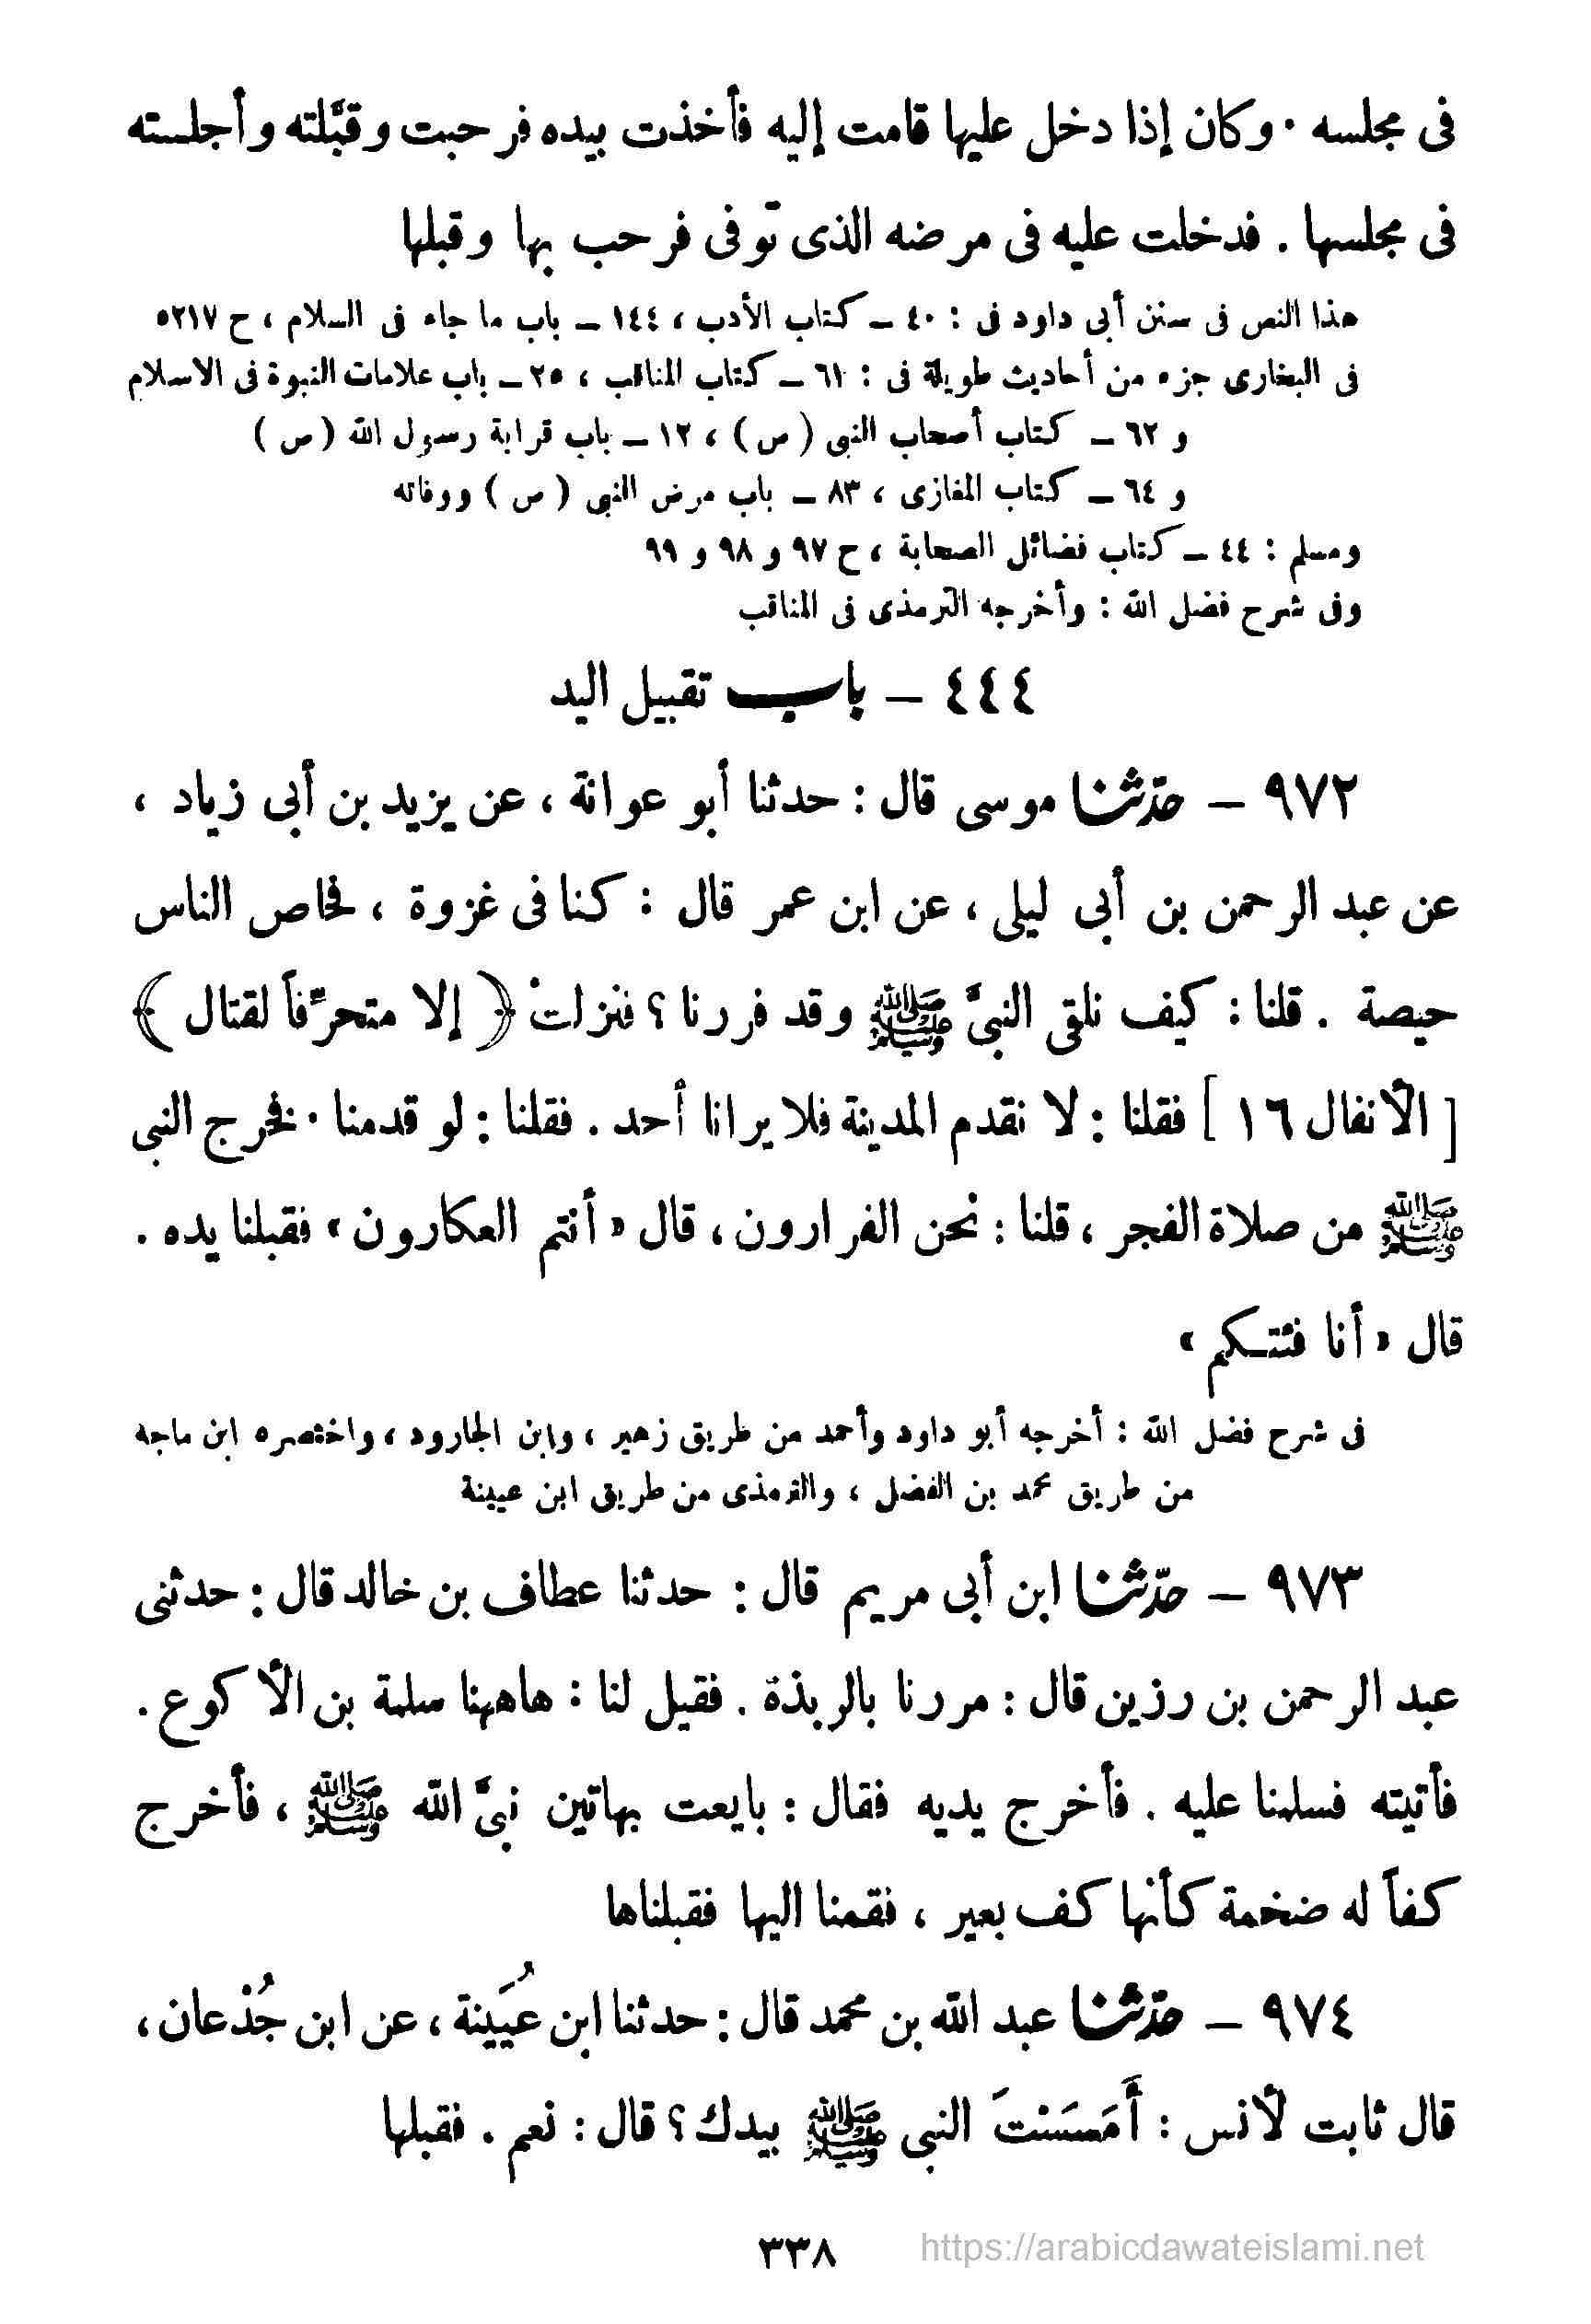 فى مجلسه . وكان إذا دخل عليها قامت إليه فأخذت بيده فرحبت وقبَّلته وأجلسته
فى مجلسها . فدخلت عليه فى مرضه الذى توفى فرحب بها وقبلها
هذا النص فى سنن أبى داود فى : ٤٠ ــ كتاب الأدب ، ١٤٤ ــ باب ما جاء فى السلام ، ح ٥٢١٧
فى البخارى جزء من أحاديث طويلة فى : ٦١ ــ كتاب المناقب ، ٢٥ ــ باب علامات النبوة فى الاسلام
و ٦٢ ــ كتاب أصحاب النبى ( ص ) ، ١٢ ــ باب قرابة رسول الله ( ص )
و ٦٤ ــ كتاب المغازى ، ٨٣ ــ باب مرض النبى ( ص ) ووفاته
ومسلم : ٤٤ ــ كتاب فضائل الصحابة ، ح ٩٧ و ٩٨ و ٩٩
وفى شرح فضل الله : وأخرجه الترمذى فى المناقب
٤٤٤ ــ باب تقبيل اليد
٩٧٢ ــ حدّثنا موسى قال : حدثنا أبو عوانة ، عن يزيد بن أبى زياد ،
عن عبد الرحمن بن أبى ليلى ، عن ابن عمر قال : كنا فى غزوة ، فحاص الناس
حيصة . قلنا : كيف نلقى النبىَّ ﷺ وقد فررنا ؟ فنزلتْ ﴿ إلا متحرِّفاً لقتال ﴾
[ الأنفال ١٦ ] فقلنا : لا نقدم المدينة فلا يرانا أحد . فقلنا : لو قدمنا . فخرج النبى
ﷺ من صلاة الفجر ، قلنا : نحن الفرارون ، قال « أنتم العكارون » فقبلنا يده .
قال « أنا فئتكم »
فى شرح فضل الله : أخرجه أبو داود وأحمد من طريق زهير ، وابن الجارود ، واختصره ابن ماجه
من طريق محمد بن الفضل ، والترمذى من طريق ابن عيينة
٩٧٣ ــ حدّثنا ابن أبى مريم قال : حدثنا عطاف بن خالد قال : حدثنى
عبد الرحمن بن رزين قال : مررنا بالربذة . فقيل لنا : هاهنا سلمة بن الأكوع .
فأتيته فسلمنا عليه . فأخرج يديه فقال : بايعت بهاتين نبىَّ الله ﷺ ، فأخرج
كفاً له ضخمة كأنها كف بعير ، فقمنا اليها فقبلناها
٩٧٤ ــ حدّثنا عبد الله بن محمد قال : حدثنا ابن عُيَينة ، عن ابن جُدْعان ،
قال ثابت لأنس : أَمَسَسْتَ النبى ﷺ بيدك ؟ قال : نعم . فقبلها
٣٣٨
https://arabicdawateislami.net